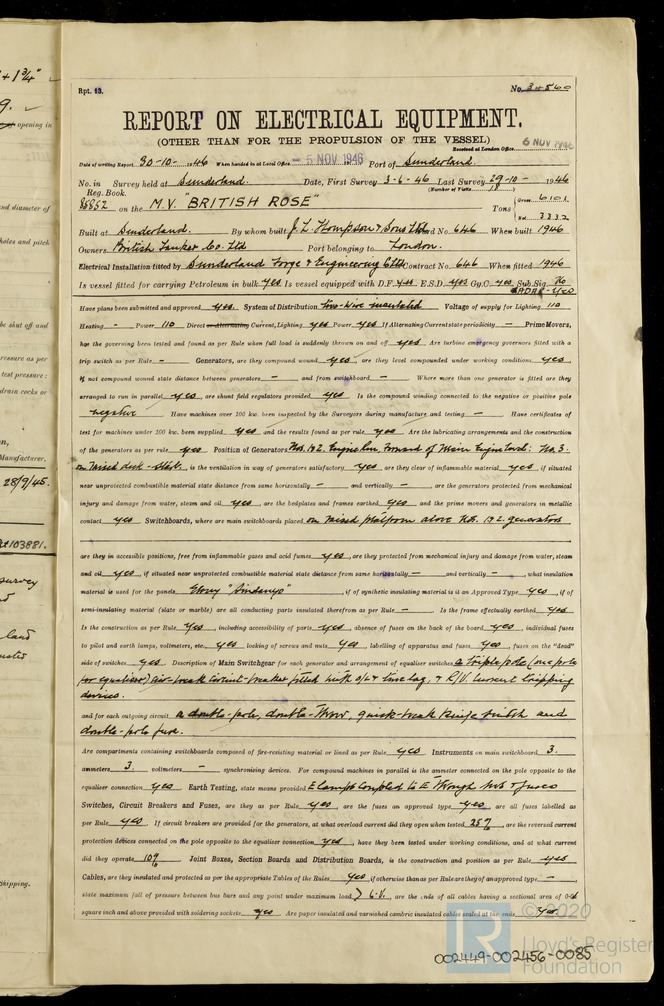 + 1¾"
9.
opening in
nd diameter of
holes and pitch
be shut off and
ressure as per
test pressure :
drain cocks or
Manufacturer.
28/9/45.
103881.
survey
land
Shipping.
Rpt. 13.
No. 34560
REPORT ON ELECTRICAL EQUIPMENT.
(OTHER THAN FOR THE PROPULSION OF THE VESSEL)
Received at London Office 6 NOV 1946
Date of writing Report 30-10- 1946 When handed in at Local Office - 5 NOV 1946 Port of Sunderland.
No. in Survey held at Sunderland. Date, First Survey 3-6-46 Last Survey 29-10- 1946
Reg. Book. (Number of Visits 18)
85852 on the M.V. "BRITISH ROSE" Tons { Gross 6101 Net 3332
Built at Sunderland. By whom built J. L. Thompson & Sons Ltd Yard No. 646 When built 1946
Owners British Tanker Co. Ltd Port belonging to London.
Electrical Installation fitted by Sunderland Forge & Engineering C Ltd Contract No. 646 When fitted 1946
Is vessel fitted for carrying Petroleum in bulk yes Is vessel equipped with D.F. yes E.S.D. yes Gy.C. yes Sub.Sig. No
RADAR - Yes
Have plans been submitted and approved yes. System of Distribution Two-wire insulated Voltage of supply for Lighting 110
Heating - Power 110 Direct or Alternating Current, Lighting yes Power yes If Alternating Current state periodicity - Prime Movers,
has the governing been tested and found as per Rule when full load is suddenly thrown on and off yes Are turbine emergency governors fitted with a
trip switch as per Rule - Generators, are they compound wound yes, are they level compounded under working conditions yes
if not compound wound state distance between generators - and from switchboard - Where more than one generator is fitted are they
arranged to run in parallel yes, are shunt field regulators provided yes Is the compound winding connected to the negative or positive pole
negative Have machines over 100 kw. been inspected by the Surveyors during manufacture and testing - Have certificates of
test for machines under 100 kw. been supplied yes and the results found as per rule yes Are the lubricating arrangements and the construction
of the generators as per rule yes Position of Generators Nos. 1 & 2. Engine Rm, Forward of Main Engine Level: No. 3.
on raised deck - Stbd., is the ventilation in way of generators satisfactory yes are they clear of inflammable material yes if situated
near unprotected combustible material state distance from same horizontally - and vertically - are the generators protected from mechanical
injury and damage from water, steam and oil yes, are the bedplates and frames earthed yes and the prime movers and generators in metallic
contact yes Switchboards, where are main switchboards placed on raised platform above Nos. 1 & 2 generators
are they in accessible positions, free from inflammable gases and acid fumes yes, are they protected from mechanical injury and damage from water, steam
and oil yes, if situated near unprotected combustible material state distance from same horizontally - and vertically -, what insulation
material is used for the panels Ebony "Sindanyo", if of synthetic insulating material is it an Approved Type yes, if of
semi-insulating material (slate or marble) are all conducting parts insulated therefrom as per Rule - Is the frame effectually earthed yes
Is the construction as per Rule yes, including accessibility of parts yes, absence of fuses on the back of the board yes, individual fuses
to pilot and earth lamps, voltmeters, etc. yes locking of screws and nuts yes, labelling of apparatus and fuses yes, fuses on the "dead"
side of switches yes. Description of Main Switchgear for each generator and arrangement of equaliser switches a triple pole (one pole
for equaliser) air-break circuit-breaker fitted with o/l & time lag, & R/V. current tripping
devices.
and for each outgoing circuit a double-pole, double-throw, quick-break knife switch and
double-pole fuse.
Are compartments containing switchboards composed of fire-resisting material or lined as per Rule yes Instruments on main switchboard 3.
ammeters 3. voltmeters - synchronising devices. For compound machines in parallel is the ammeter connected on the pole opposite to the
equaliser connection yes Earth Testing, state means provided E lamps coupled to E through sws & fuses
Switches, Circuit Breakers and Fuses, are they as per Rule yes, are the fuses an approved type yes, are all fuses labelled as
per Rule yes If circuit breakers are provided for the generators, at what overload current did they open when tested 25%, are the reversed current
protection devices connected on the pole opposite to the equaliser connection yes, have they been tested under working conditions, and at what current
did they operate 10% Joint Boxes, Section Boards and Distribution Boards, is the construction and position as per Rule yes
Cables, are they insulated and protected as per the appropriate Tables of the Rules yes if otherwise than as per Rule are they of an approved type -
state maximum fall of pressure between bus bars and any point under maximum load > 6 V., are the ends of all cables having a sectional area of 0·04
square inch and above provided with soldering sockets yes Are paper insulated and varnished cambric insulated cables sealed at the ends yes.
© 2020
Lloyd's Register
Foundation
002449-002456-0085